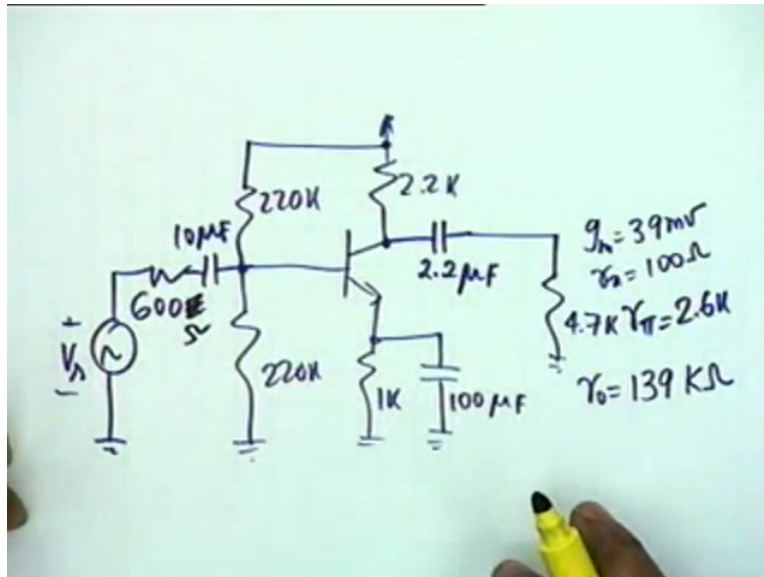 220K
2.2K
10µF
600Ω
+
V
-
2.2µF
220K
1K
100µF
4.7K
gm = 39m℧
rx = 100Ω
rπ = 2.6K
r0 = 139 KΩ